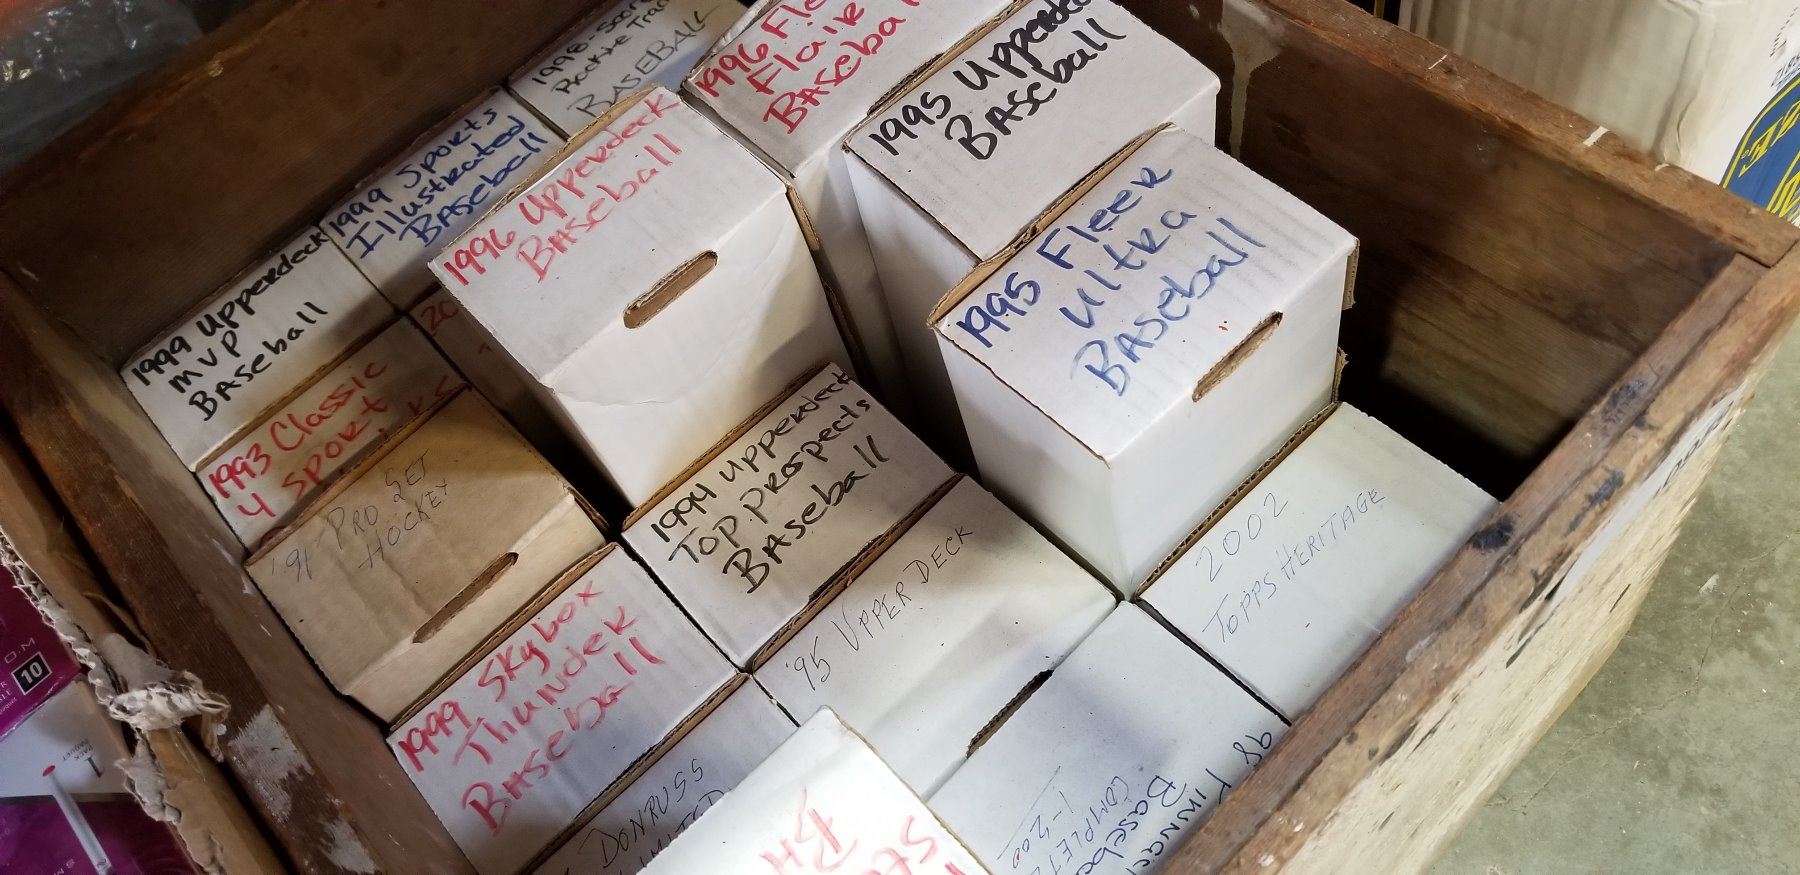 1998-Score
Rookie Trad
BASEBALL
1996 Fle
Flair
Baseball
1995 Upperde
Baseball
1999 Sports
Illustrated
Baseball
1996 Upperdeck
Baseball
1995 Fleer
Ultra
Baseball
1999 Upperdeck
MVP
Baseball
20
1993 Classic
4 Sport
'91 PRO SET
HOCKEY
1994 Upperdeck
Top Prospects
Baseball
2002
TOPPS HERITAGE
'95 UPPER DECK
1999 Skybox
Thunder
Baseball
DONRUSS
98
Baseba
COMPLETE
1-200
10